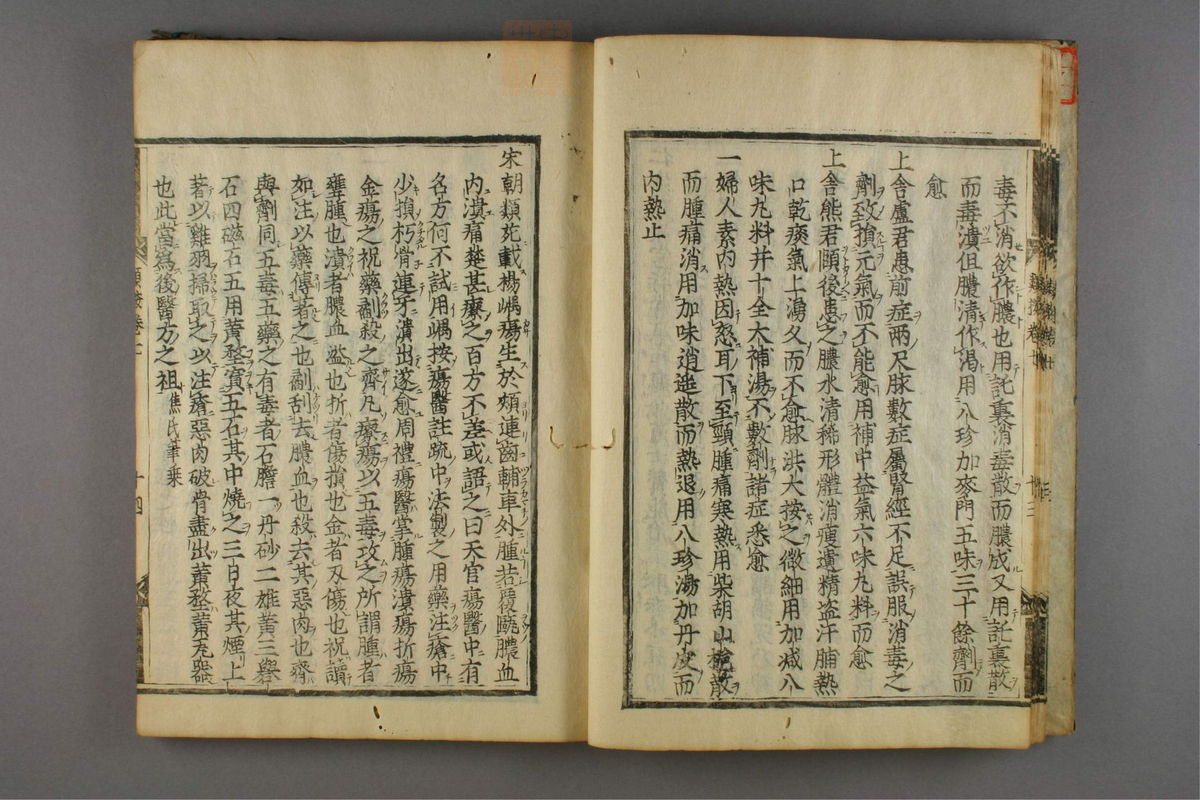 毒不消欲作膿也用託裏消毒散而膿成又用託裏散
而毒潰但膿清作渴用八珍加麥門五味三十餘劑而
愈
上舍盧君患前症兩尺脉數症屬腎經不足誤服消毒之
劑致損元氣而不能愈用補中益氣六味丸料而愈
上舍熊君頤後患之膿水清稀形體消瘦遺精盗汗晡熱
口乾痰氣上湧久而不愈脉洪大按之微細用加减八
味丸料并十全大補湯不數劑諸症悉愈
一婦人素内熱因怒耳下至頸腫痛寒熱用柴胡山梔散
而腫痛消用加味逍遥散而熱退用八珍湯加丹皮而
内熱止
宋朝類苑載楊嵎瘍生於頰連齒輔車外腫若覆甌膿血
内潰痛楚甚療之百方不差或語之曰天官瘍醫中有
名方何不試用嵎按瘍醫註疏中法製之用藥注瘡中
少損朽骨連牙潰出遂愈周禮瘍醫掌腫瘍潰瘍折瘍
金瘍之祝藥劀殺之齊凡療瘍以五毒攻之所謂腫者
壅腫也潰者膿血溢也折者傷損也金者刃傷也祝讀
如注以藥傅著之也劀刮去膿血也殺去其惡肉也齊
與劑同五毒五藥之有毒者石膽一丹砂二雄黄三礜
石四磁石五用黄堥寘五石其中燒之三日夜其煙上
著以雞羽掃取之以注瘡惡肉破骨盡出黄堥黄瓦器
也此當爲後醫方之祖 焦氏筆乘
十四